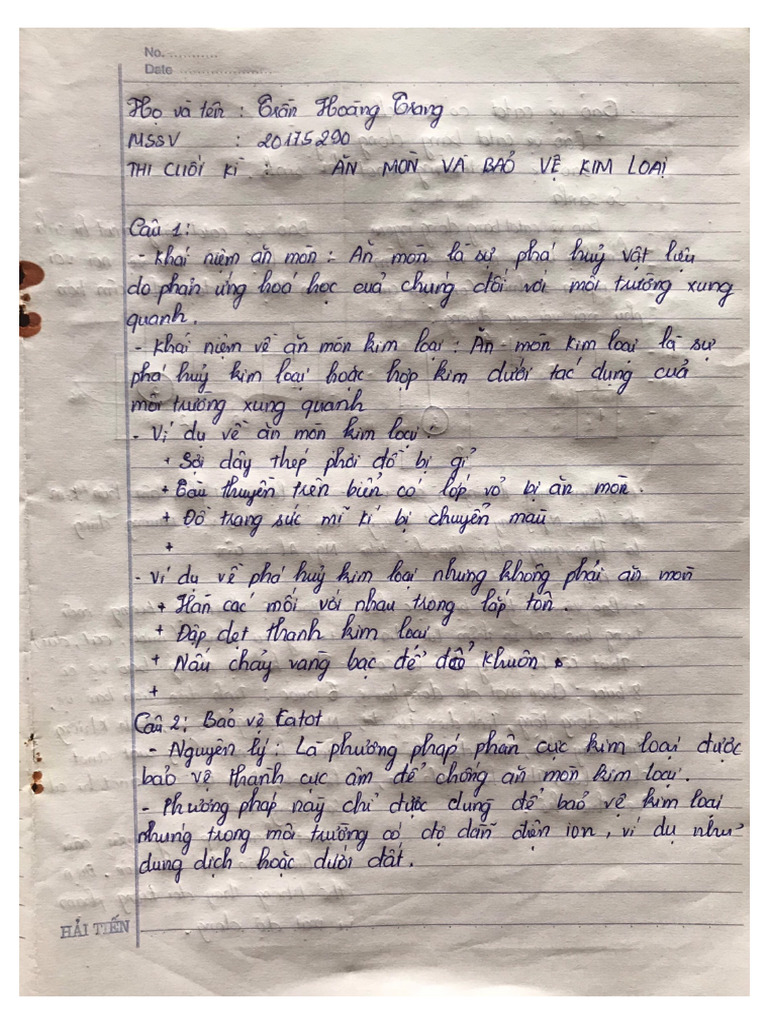 No. ...........
Date .......................
Họ và tên : Trần Hoàng Trang
MSSV : 20175290
THI CUỐI KÌ : ĂN MÒN VÀ BẢO VỆ KIM LOẠI
Câu 1:
- Khái niệm ăn mòn : Ăn mòn là sự phá huỷ vật liệu
do phản ứng hoá học của chúng đối với môi trường xung
quanh.
- Khái niệm về ăn mòn kim loại : Ăn mòn kim loại là sự
phá huỷ kim loại hoặc hợp kim dưới tác dụng của
môi trường xung quanh
- Ví dụ về ăn mòn kim loại :
+ Sợi dây thép phơi đồ bị gỉ
+ Tàu thuyền trên biển có lớp vỏ bị ăn mòn.
+ Đồ trang sức mĩ kí bị chuyển màu
+
- Ví dụ về phá huỷ kim loại nhưng không phải ăn mòn
+ Hàn các mối với nhau trong lắp tôn.
+ Đập dẹt thanh kim loại
+ Nấu chảy vàng bạc để đổ khuôn.
+
Câu 2: Bảo vệ Catot
- Nguyên lý : Là phương pháp phân cực kim loại được
bảo vệ thành cực âm để chống ăn mòn kim loại.
- Phương pháp này chỉ được dùng để bảo vệ kim loại
nhúng trong môi trường có độ dẫn điện ion, ví dụ như
dung dịch hoặc dưới đất.
HẢI TIẾN